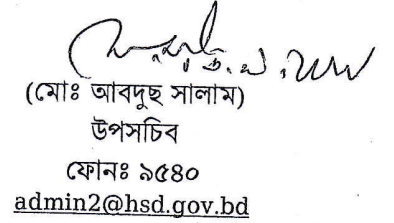 (মোঃ আবদুছ সালাম)
উপসচিব
ফোনঃ ৯৫৪০
admin2@hsd.gov.bd